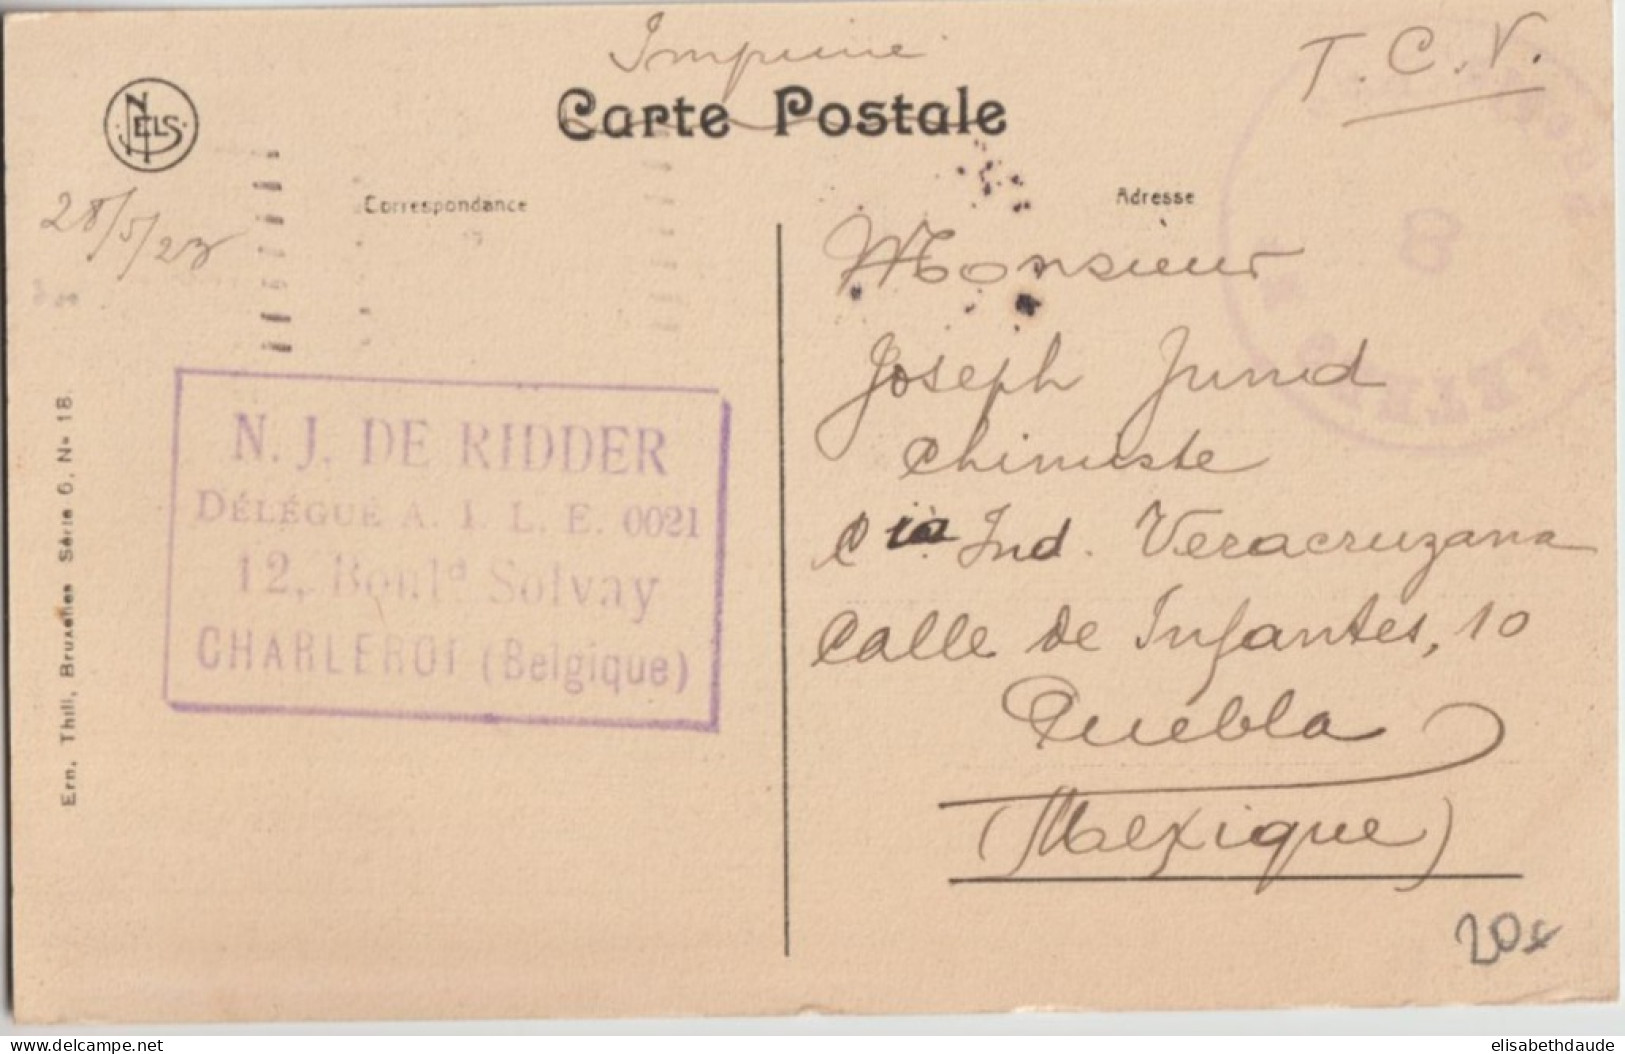 Imprimé
T.C.V.
Carte Postale
NELS
28/5/23
Correspondance
Adresse
8
Monsieur
Joseph Junod
Chimiste
Cia Ind. Veracruzana
Calle de Infantes, 10
Puebla
(Mexique)
N. J. DE RIDDER
DÉLÉGUÉ A. I. L. E. 0021
12, Boulᵈ Solvay
CHARLEROI (Belgique)
Ern. Thill, Bruxelles Série 6, Nº 18.
20x
www.delcampe.net
elisabethdaude